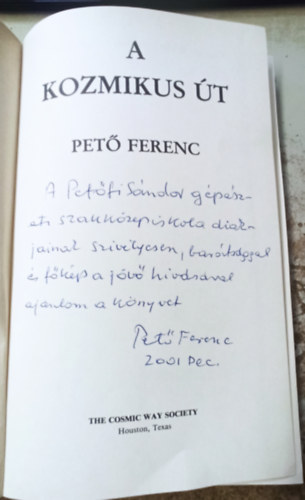 A
KOZMIKUS ÚT
PETŐ FERENC
A Petőfi Sándor gépész-
eti szakközépiskola diák-
jainak szívélyesen, barátsággal
és főkép a jövő hívásával
ajánlom a könyvet
Pető Ferenc
2001 Dec.
THE COSMIC WAY SOCIETY
Houston, Texas